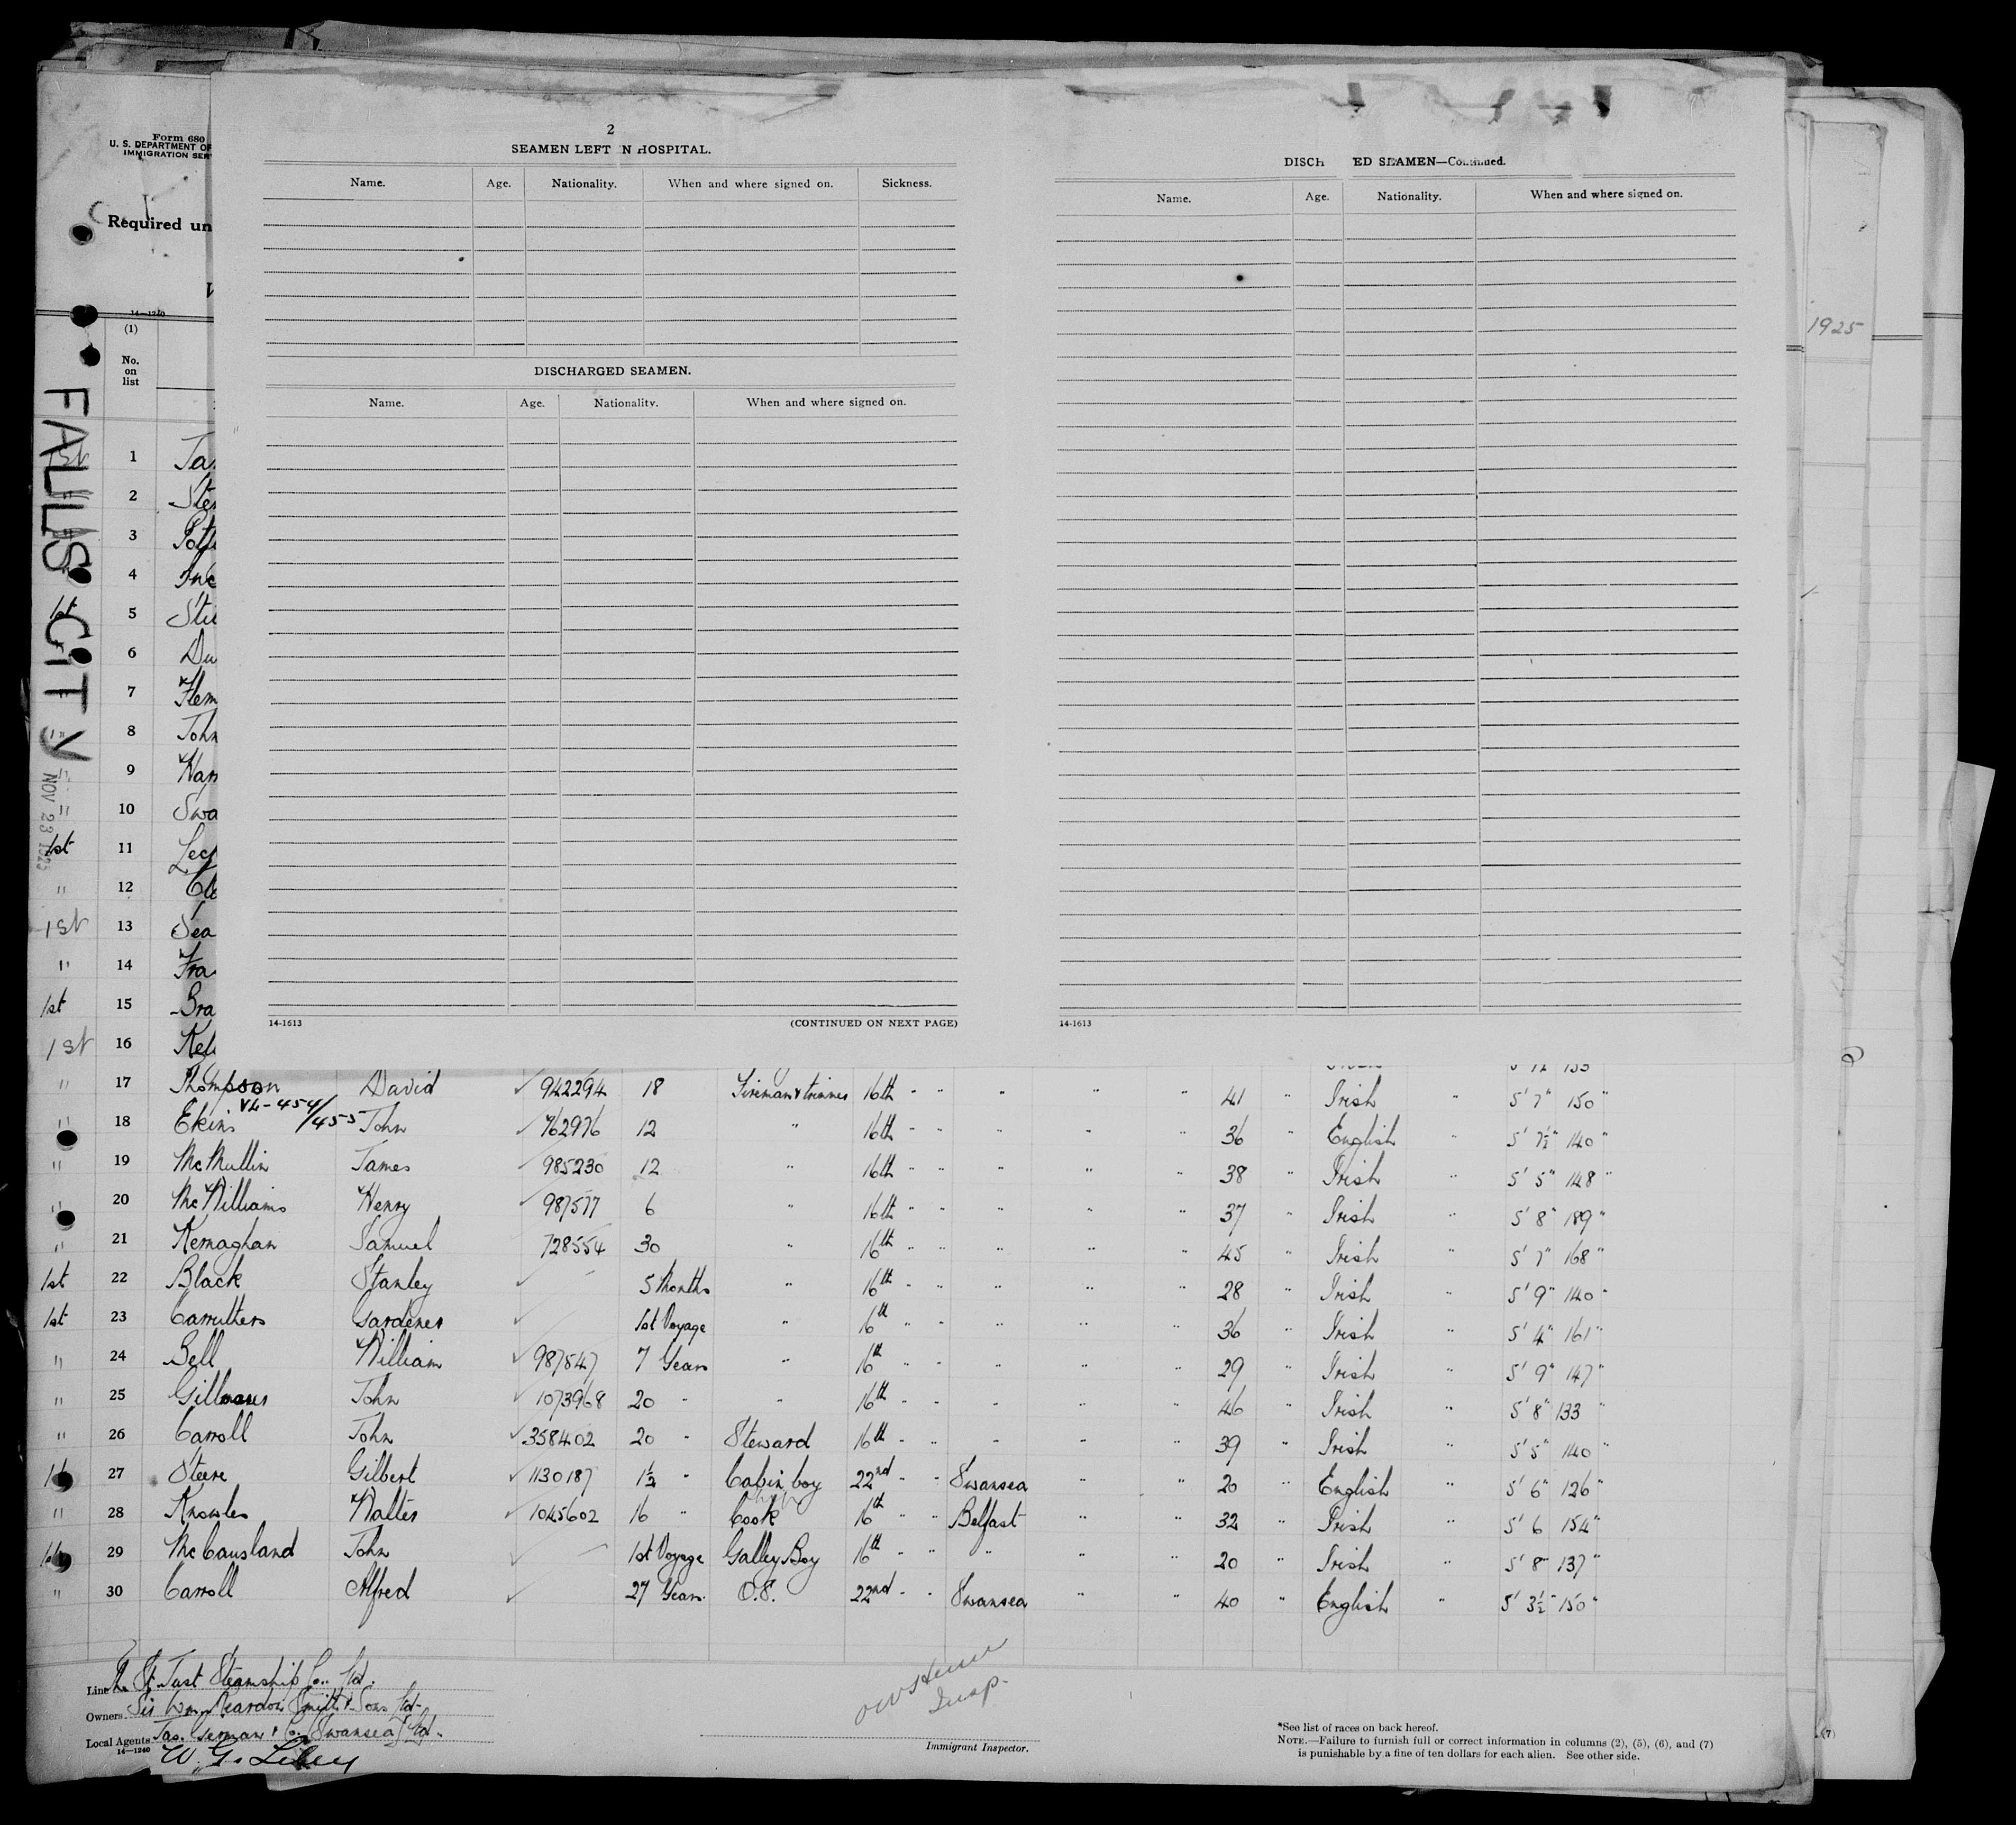 2
SEAMEN LEFT IN HOSPITAL.
Name. Age. Nationality. When and where signed on. Sickness.
DISCHARGED SEAMEN.
Name. Age. Nationality. When and where signed on.
14-1613 (CONTINUED ON NEXT PAGE)
DISCH ED SEAMEN—Continued.
Name. Age. Nationality. When and where signed on.
14-1613
1925
Form 680
U. S. DEPARTMENT OF
IMMIGRATION SER
Required un
14—1240
(1)
No.
on
list
FALLS CITY
NOV 23 1925
1st 1 Ja
" 2 Ste
" 3 Pott
" 4 Inc
1st 5 Stu
" 6 Du
" 7 Flem
" 8 John
" 9 Han
" 10 Swa
1st 11 Lec
" 12 Cl
1st 13 Sea
" 14 Fra
1st 15 Bra
1st 16 Kel
" 17 Thompson David ✓ 942294 18 Fireman & trimmer 16th " " " " " 41 " Irish " 5' 7" 150"
VL-454/455
" 18 Ekins John ✓ 762976 12 " 16th " " " " " 36 " English " 5' 7½" 140"
" 19 McMullin James ✓ 985230 12 " 16th " " " " " 38 " Irish " 5' 5" 148"
" 20 McWilliams Henry ✓ 987577 6 " 16th " " " " " 37 " Irish " 5' 8" 189"
" 21 Kernaghan Samuel 728554 30 " 16th " " " " " 45 " Irish " 5' 7" 168"
1st 22 Black Stanley ✓ - 5 Months " 16th " " " " " 28 " Irish " 5' 9" 140"
1st 23 Carruthers Gardener ✓ 1st Voyage " 16th " " " " " 36 " Irish " 5' 4" 161"
" 24 Bell William ✓ 987547 7 Years " 16th " " " " " 29 " Irish " 5' 9" 147"
" 25 John ✓ 1073968 20 " " 16th " " " " " 46 " Irish " 5' 8" 133"
" 26 Carroll John ✓ 358402 20 " Steward 16th " " " " " 39 " Irish " 5' 5" 140"
1st 27 Steere Gilbert ✓ 1130187 1½ " Cabin boy 22nd " " Swansea " 20 " English " 5' 6" 126"
" 28 Knowles Walter ✓ 1045602 16 " Cook 16th " " Belfast " " 32 " Irish " 5' 6 154"
1st 29 McCausland John ✓ - 1st Voyage Galley Boy 16th " " " " " 20 " Irish " 5' 8" 137"
" 30 Carroll Alfred ✓ 27 Years. O.S. 22nd " " Swansea " " 40 " English " 5' 3½" 150"
Line The St. Just Steamship Co. Ltd.
Owners Sir Wm Reardon Smith & Sons Ltd.
Local Agents Jas. German & Co. Swansea Ltd.
14—1240
Insp.
Immigrant Inspector.
*See list of races on back hereof.
NOTE.—Failure to furnish full or correct information in columns (2), (5), (6), and (7)
is punishable by a fine of ten dollars for each alien. See other side.
(7)